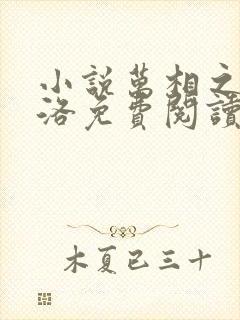 小說萬相之
洛免費閱讀
木夏已三十